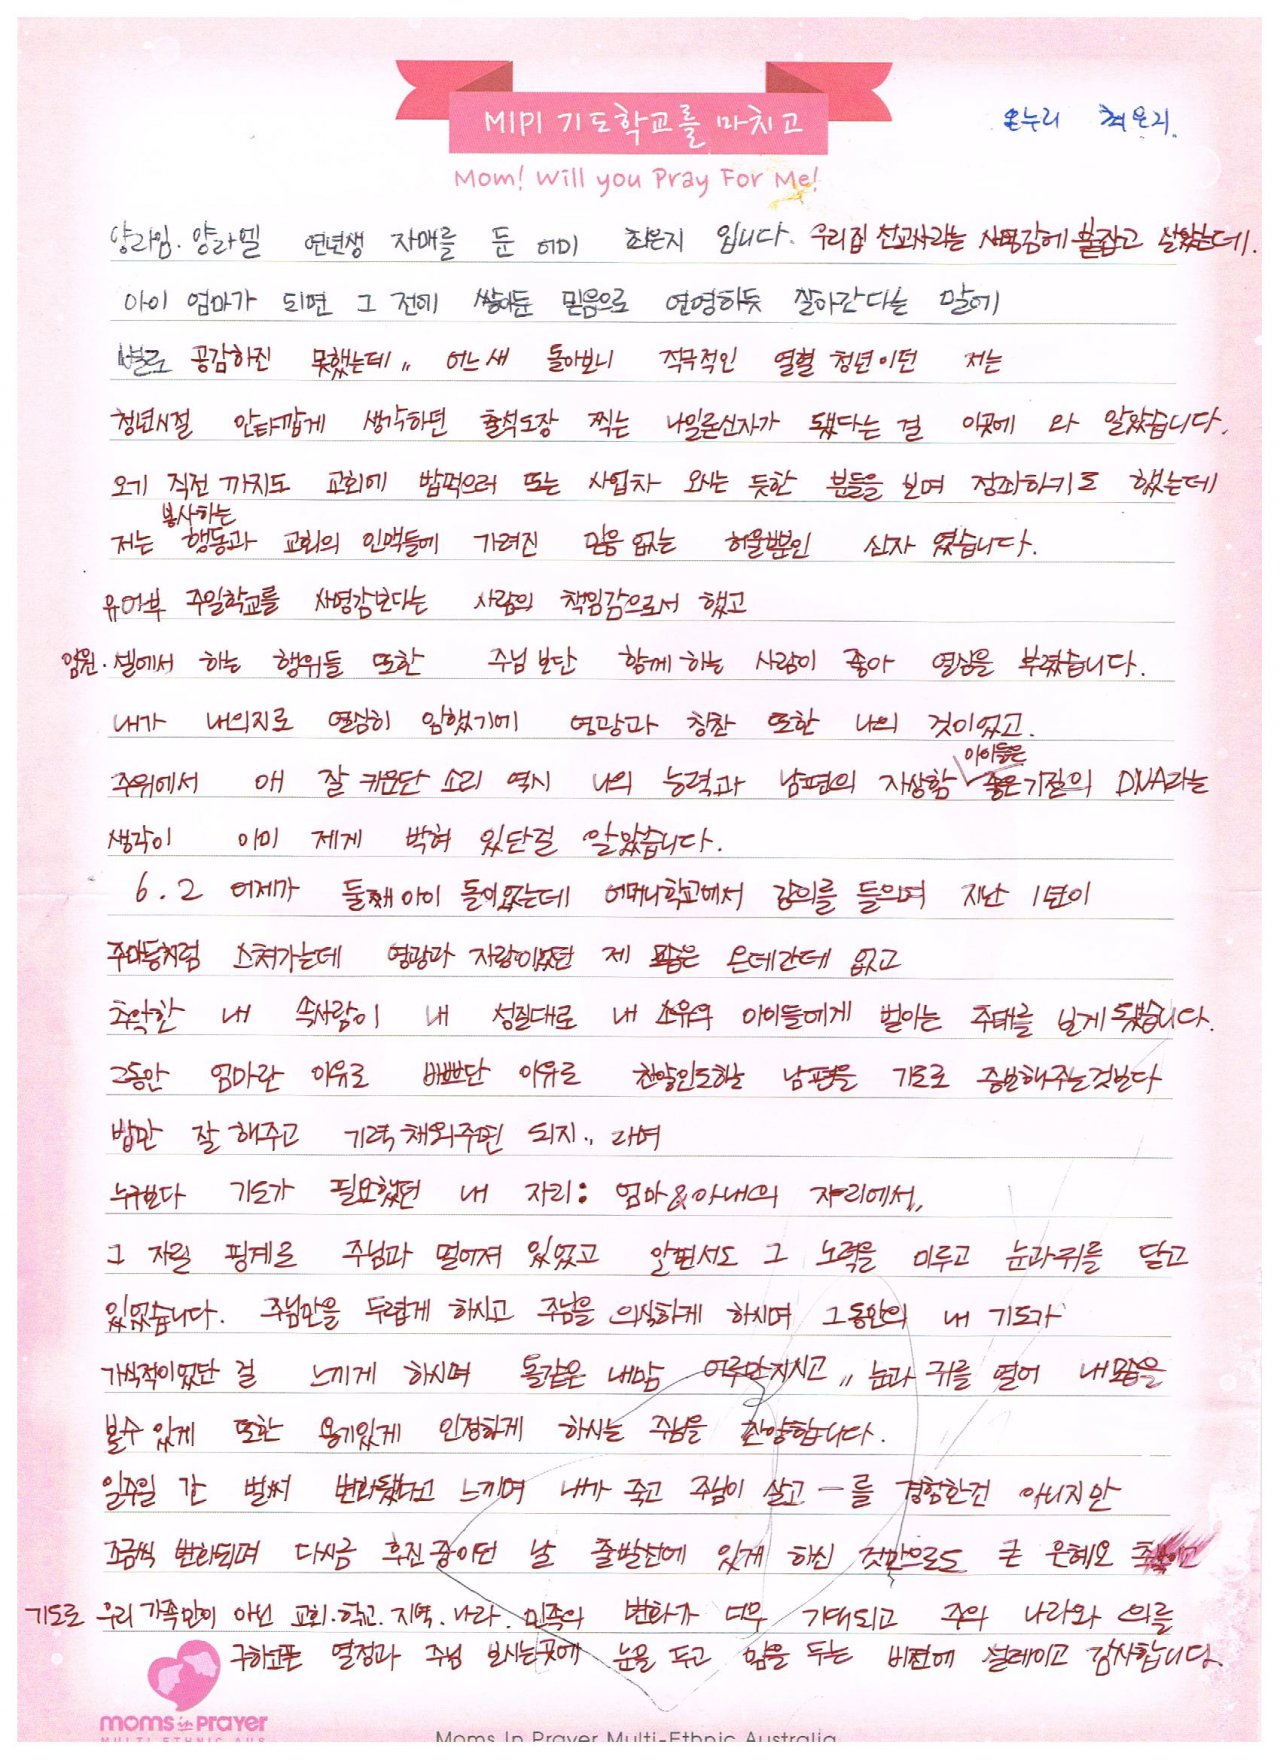 MIPI 기도학교를 마치고
온누리 최은지
Mom! Will you Pray For Me!
양라임. 양라엘 연년생 자매를 둔 어미 최은지 입니다. 우리집 선교사라는 사명감에 붙잡고 살았는데.
아이 엄마가 되면 그 전에 쌓아둔 믿음으로 연명하듯 살아간다는 말에
별로 공감하진 못했는데,, 어느새 돌아보니 적극적인 열혈 청년이던 저는
청년시절 안타깝게 생각하던 출석도장 찍는 나일론신자가 됐다는 걸 이곳에 와 알았습니다.
오기 직전 까지도 교회에 밥먹으러 또는 사업차 오시는 듯한 분들을 보며 정죄하기도 했는데
봉사하는
저는 행동과 교회의 인맥들에 가려진 믿음 없는 허울뿐인 신자 였습니다.
유아부 주일학교를 사명감보다는 사람의 책임감으로서 했고
임원. 셀에서 하는 행위들 또한 주님 보단 함께 하는 사람이 좋아 열심을 부렸습니다.
내가 내의지로 열심히 임했기에 영광과 칭찬 또한 나의 것이었고.
아이들은
주위에서 애 잘 키운단 소리 역시 나의 능력과 남편의 자상함 좋은기질의 DNA라는
생각이 이미 제게 박혀 있단걸 알았습니다.
6.2 어제가 둘째아이 돌이었는데 어머니학교에서 강의를 들으며 지난 1년이
주마등처럼 스쳐가는데 영광과 자랑이었던 제 모습은 온데간데 없고
추악한 내 속사람이 내 성질대로 내 소유의 아이들에게 벌이는 추태를 보게 됐습니다.
그동안 엄마란 이유로 바쁘단 이유로 찬양인도하는 남편을 기도로 중보해주는것보다
밥만 잘 해주고 기력 채워주면 되지., 라며
누구보다 기도가 필요했던 내 자리: 엄마&아내의 자리에서,
그 자릴 핑계로 주님과 멀어져 있었고 알면서도 그 노력을 미루고 눈과귀를 닫고
있었습니다. 주님만을 두렵게 하시고 주님을 의식하게 하시며 그동안의 내 기도가
가식적이었단 걸 느끼게 하시며 돌같은 내맘 어루만지시고,, 눈과 귀를 열어 내모습을
볼수 있게 또한 용기있게 인정하게 하시는 주님을 찬양합니다.
일주일 간 벌써 변화됐다고 느끼며 내가 죽고 주님이 살고 ㅡ를 경험한건 아니지만
조금씩 변화되며 다시금 후진중이던 날 출발선에 있게 하신 것만으로도 큰 은혜요 축복이고
기도로 우리 가족만이 아닌 교회.학교.지역.나라.민족의 변화가 너무 기대되고 주의 나라와 의를
구하고픈 열정과 주님 보시는곳에 눈을 두고 힘을 두는 비전에 설레이고 감사합니다.
moms in prayer
MULTI ETHNIC AUS
Moms In Prayer Multi-Ethnic Australia